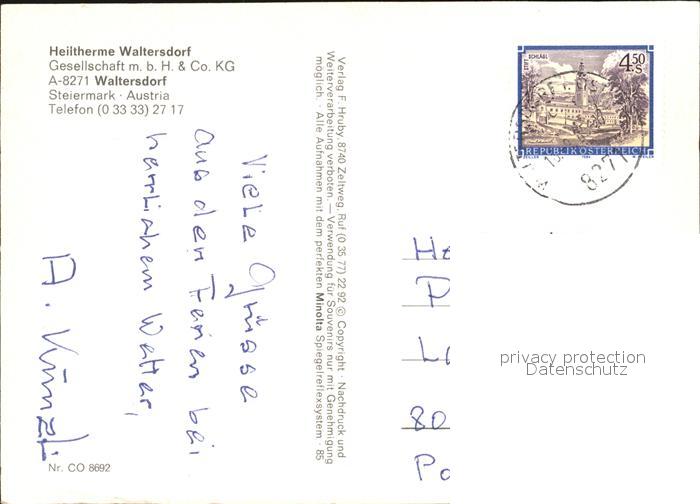 Heiltherme Waltersdorf
Gesellschaft m. b. H. & Co. KG
A-8271 Waltersdorf
Steiermark · Austria
Telefon (0 33 33) 27 17
Viele Grüsse
aus den Ferien bei
herrlichem Wetter,
A. Künzli
Nr. CO 8692
Verlag F. Hruby, 8740 Zeltweg, Ruf (0 35 77) 22 92 © Copyright · Nachdruck und
Weiterverarbeitung verboten. — Verwendung für Souvenirs nur mit Genehmigung
möglich. · Alle Aufnahmen mit dem perfekten Minolta Spiegelreflexsystem · 85
STIFT SCHLÄGL
4.50
S
REPUBLIK ÖSTERREICH
ZEILER 1984
8271
80
privacy protection
Datenschutz